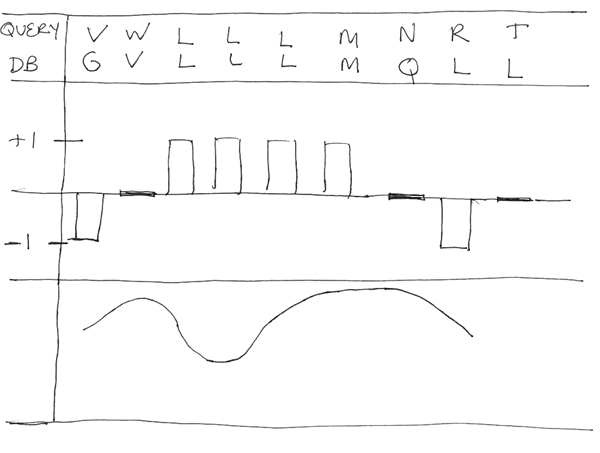 QUERY V W L L L M N R T
DB G V L L L M Q L L
+1
-1